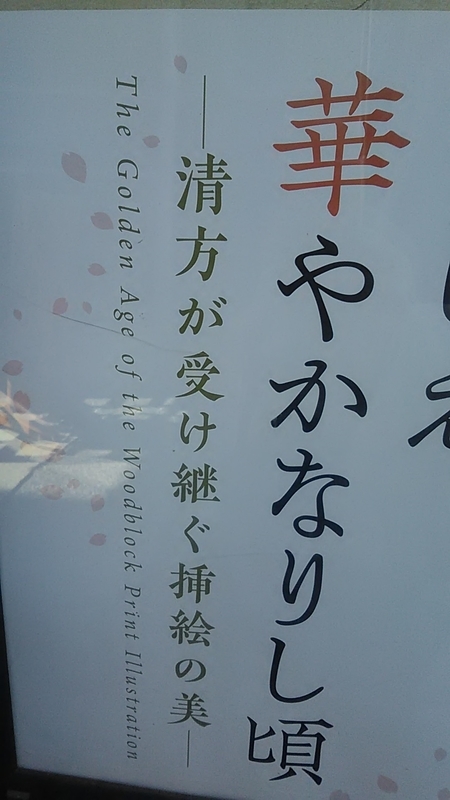 華やかなりし頃
―清方が受け継ぐ挿絵の美―
The Golden Age of the Woodblock Print Illustration